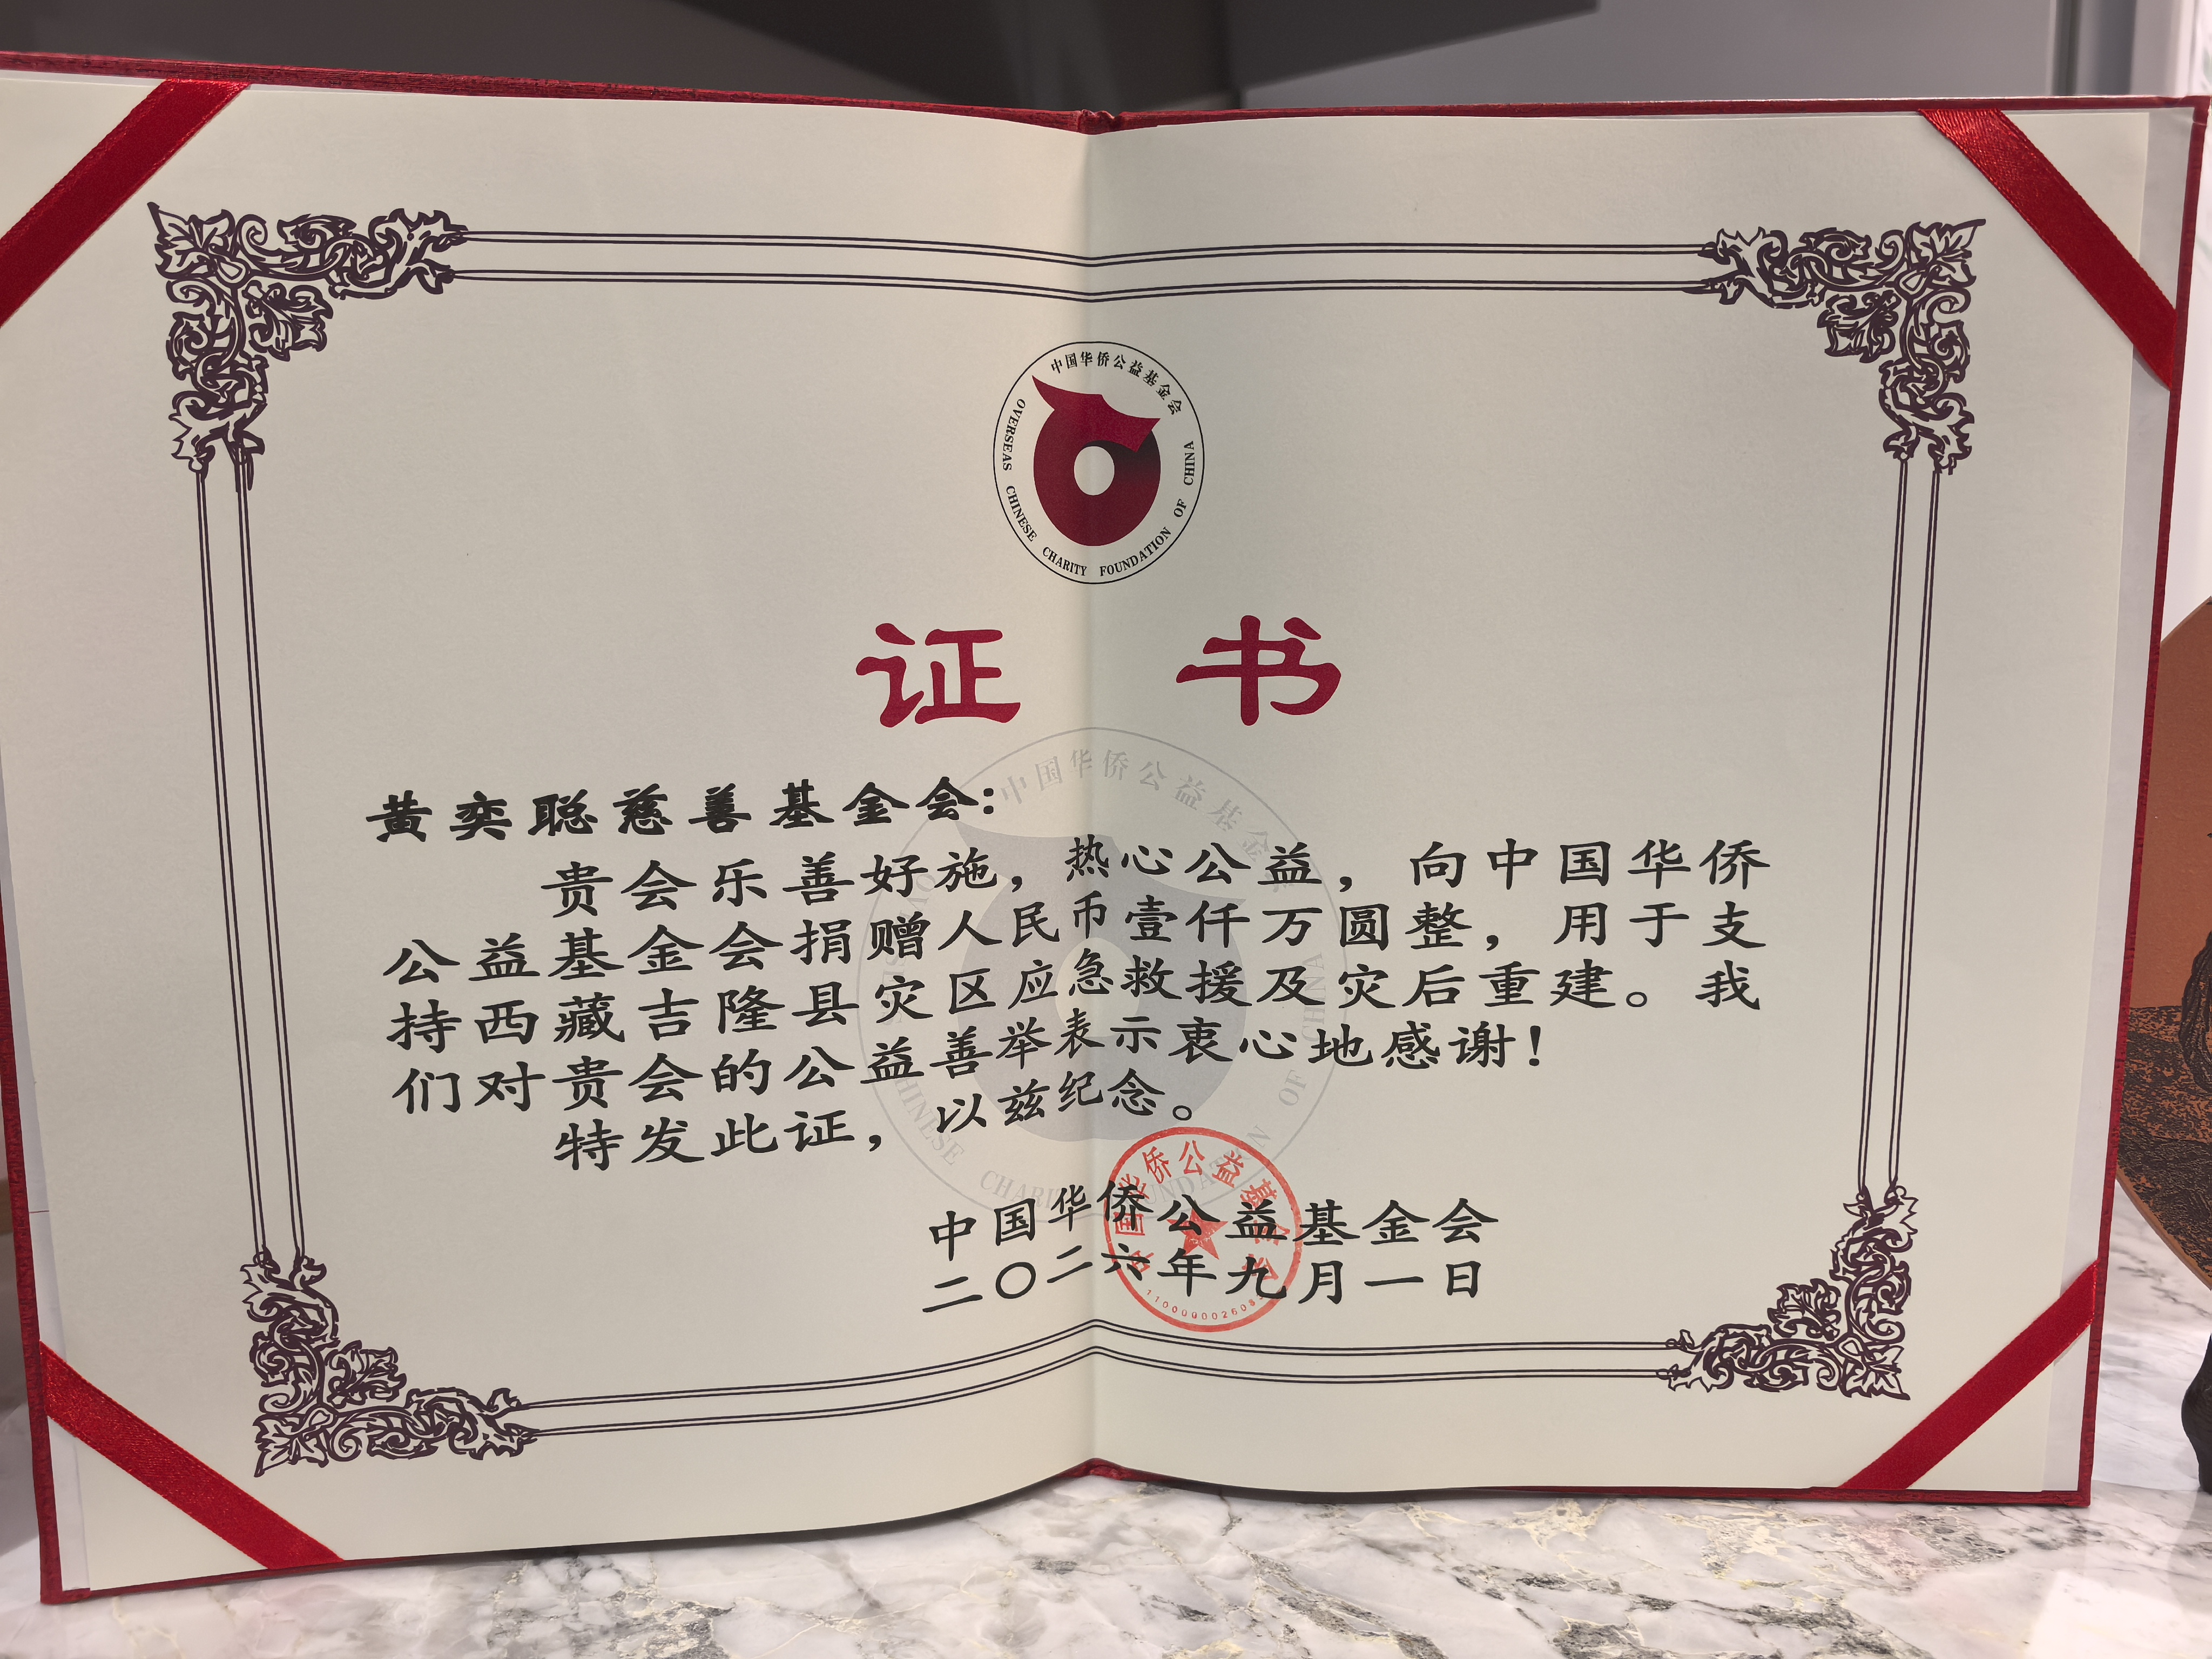 中国华侨公益基金会
OVERSEAS CHINESE CHARITY FOUNDATION OF CHINA
证 书
黄奕聪慈善基金会:
贵会乐善好施，热心公益，向中国华侨
公益基金会捐赠人民币壹仟万圆整，用于支
持西藏吉隆县灾区应急救援及灾后重建。我
们对贵会的公益善举表示衷心地感谢！
特发此证，以兹纪念。
中国华侨公益基金会
二〇二六年九月一日
中国华侨公益基金会